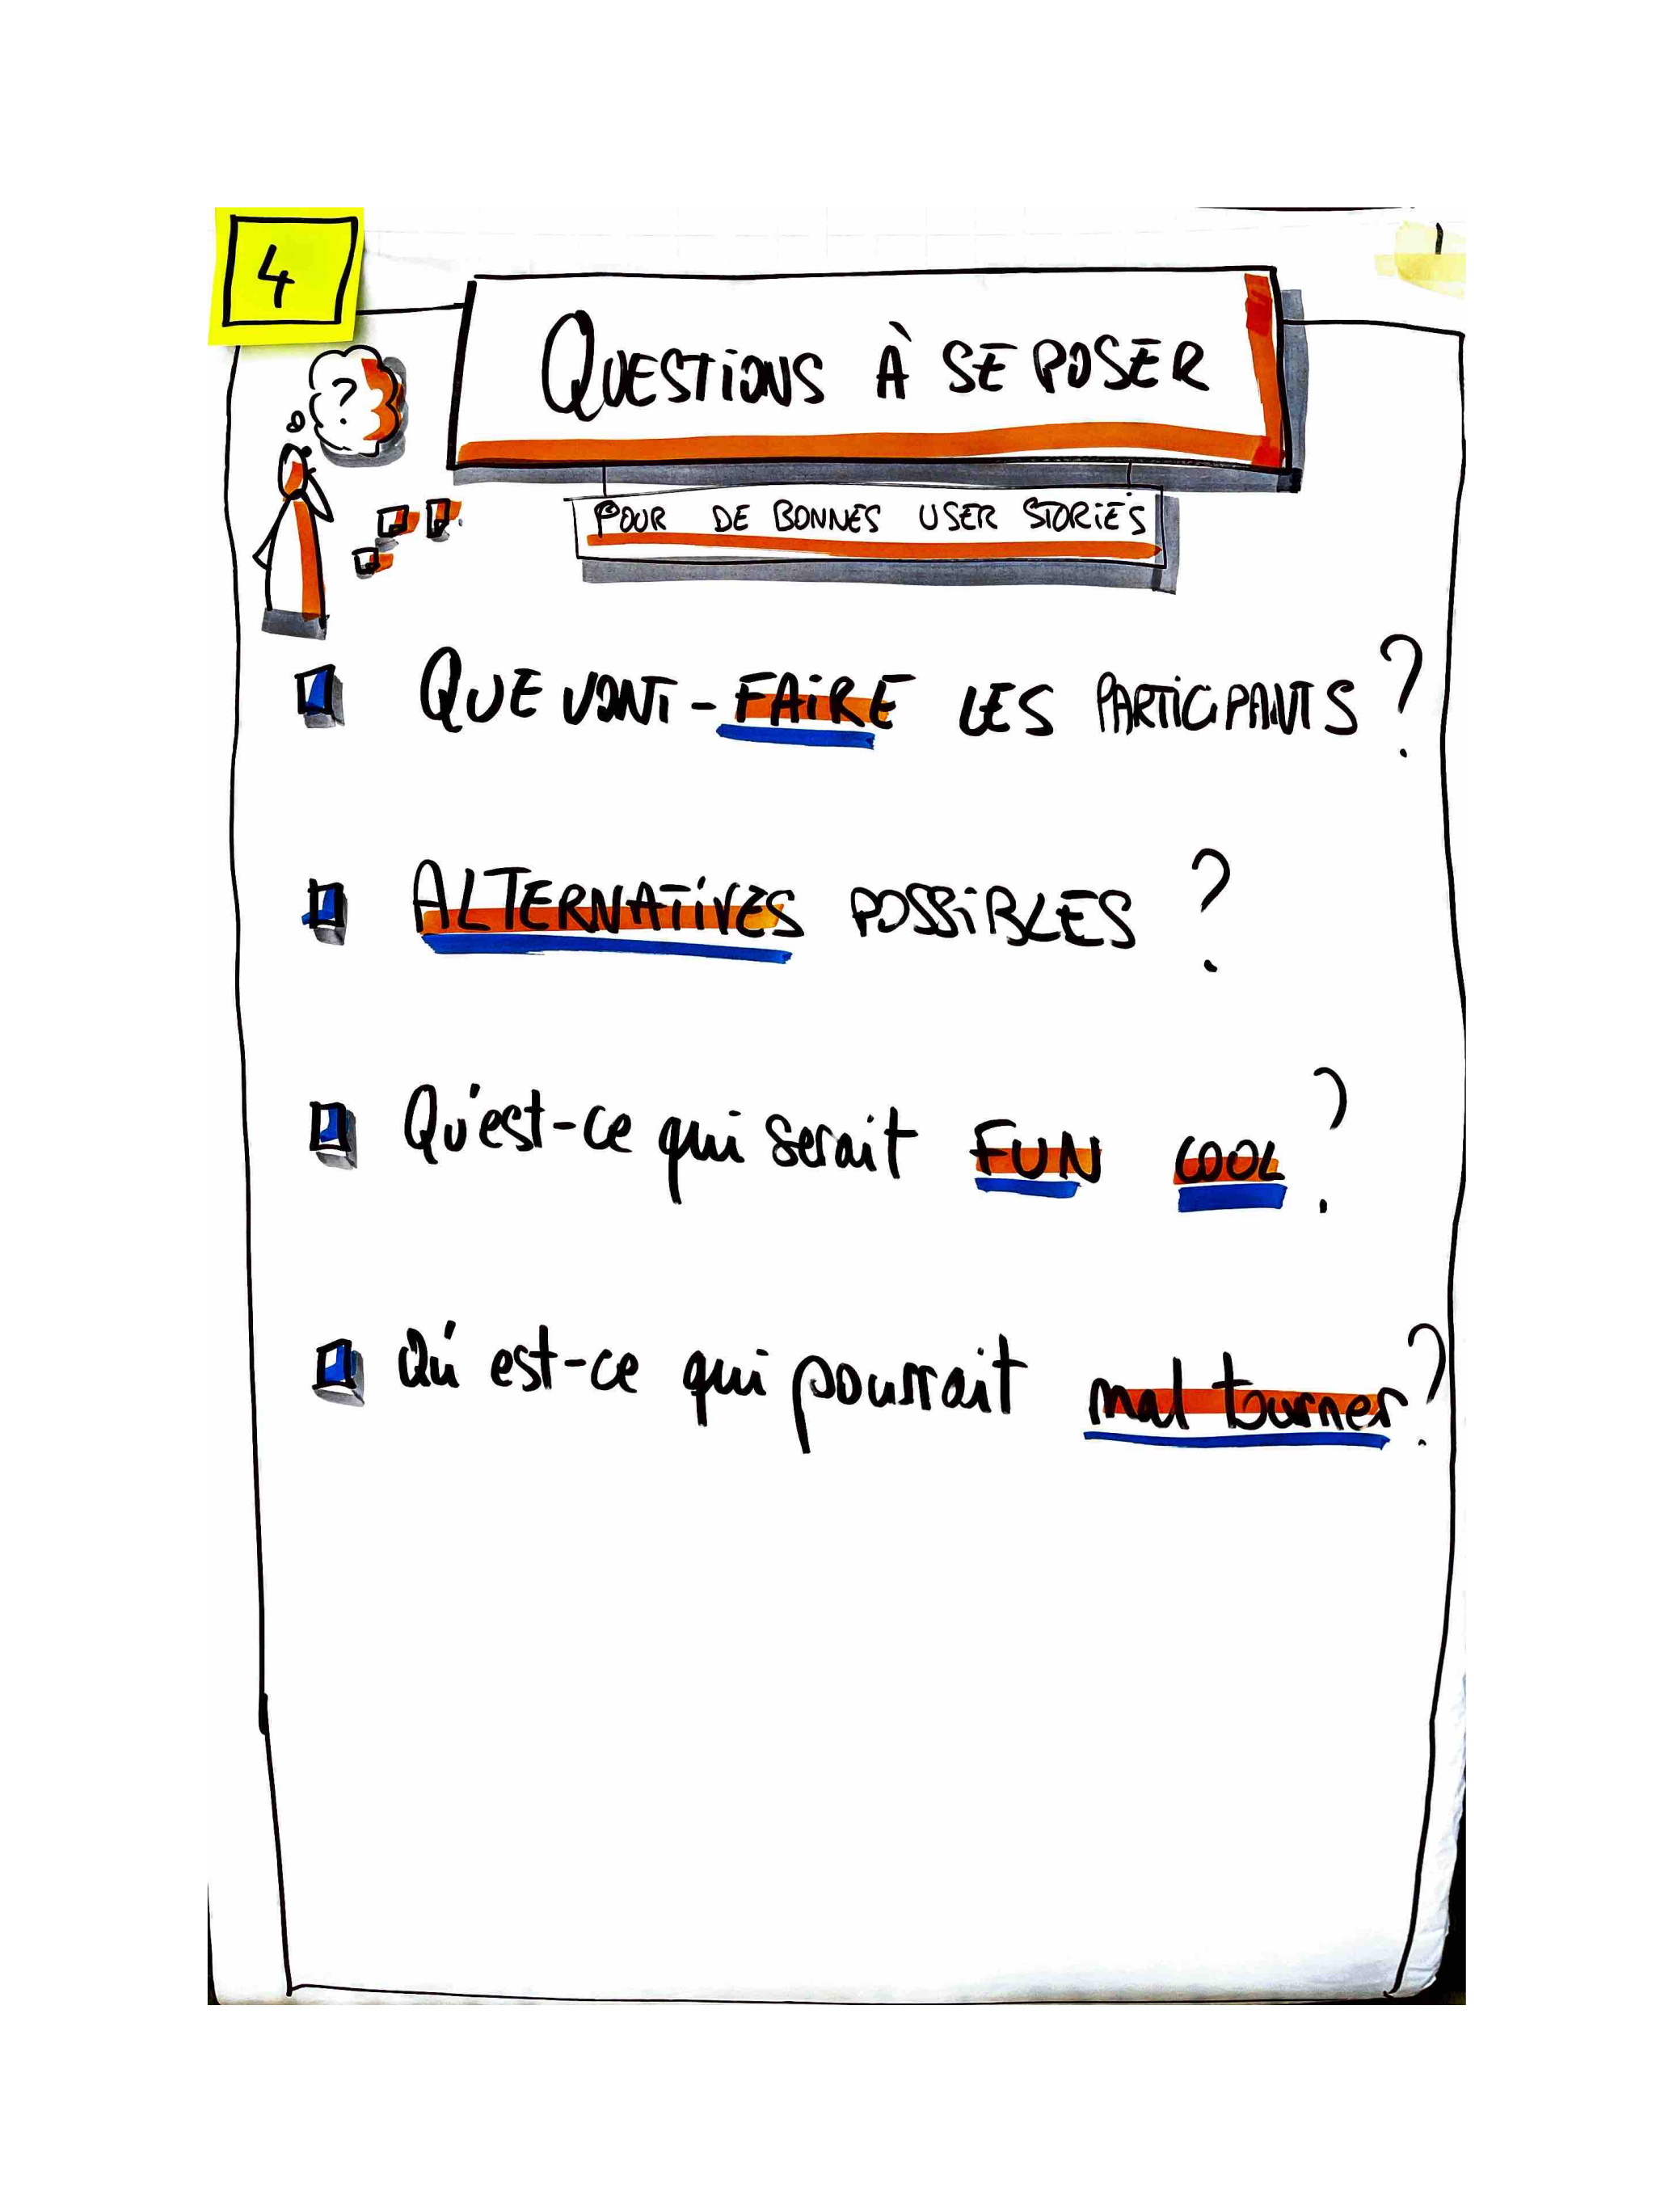 4
QUESTIONS À SE POSER
?
POUR DE BONNES USER STORIES
QUE VONT-FAIRE LES PARTICIPANTS ?
ALTERNATIVES POSSIBLES ?
Qu'est-ce qui serait FUN COOL ?
Qu'est-ce qui pourrait mal tourner ?